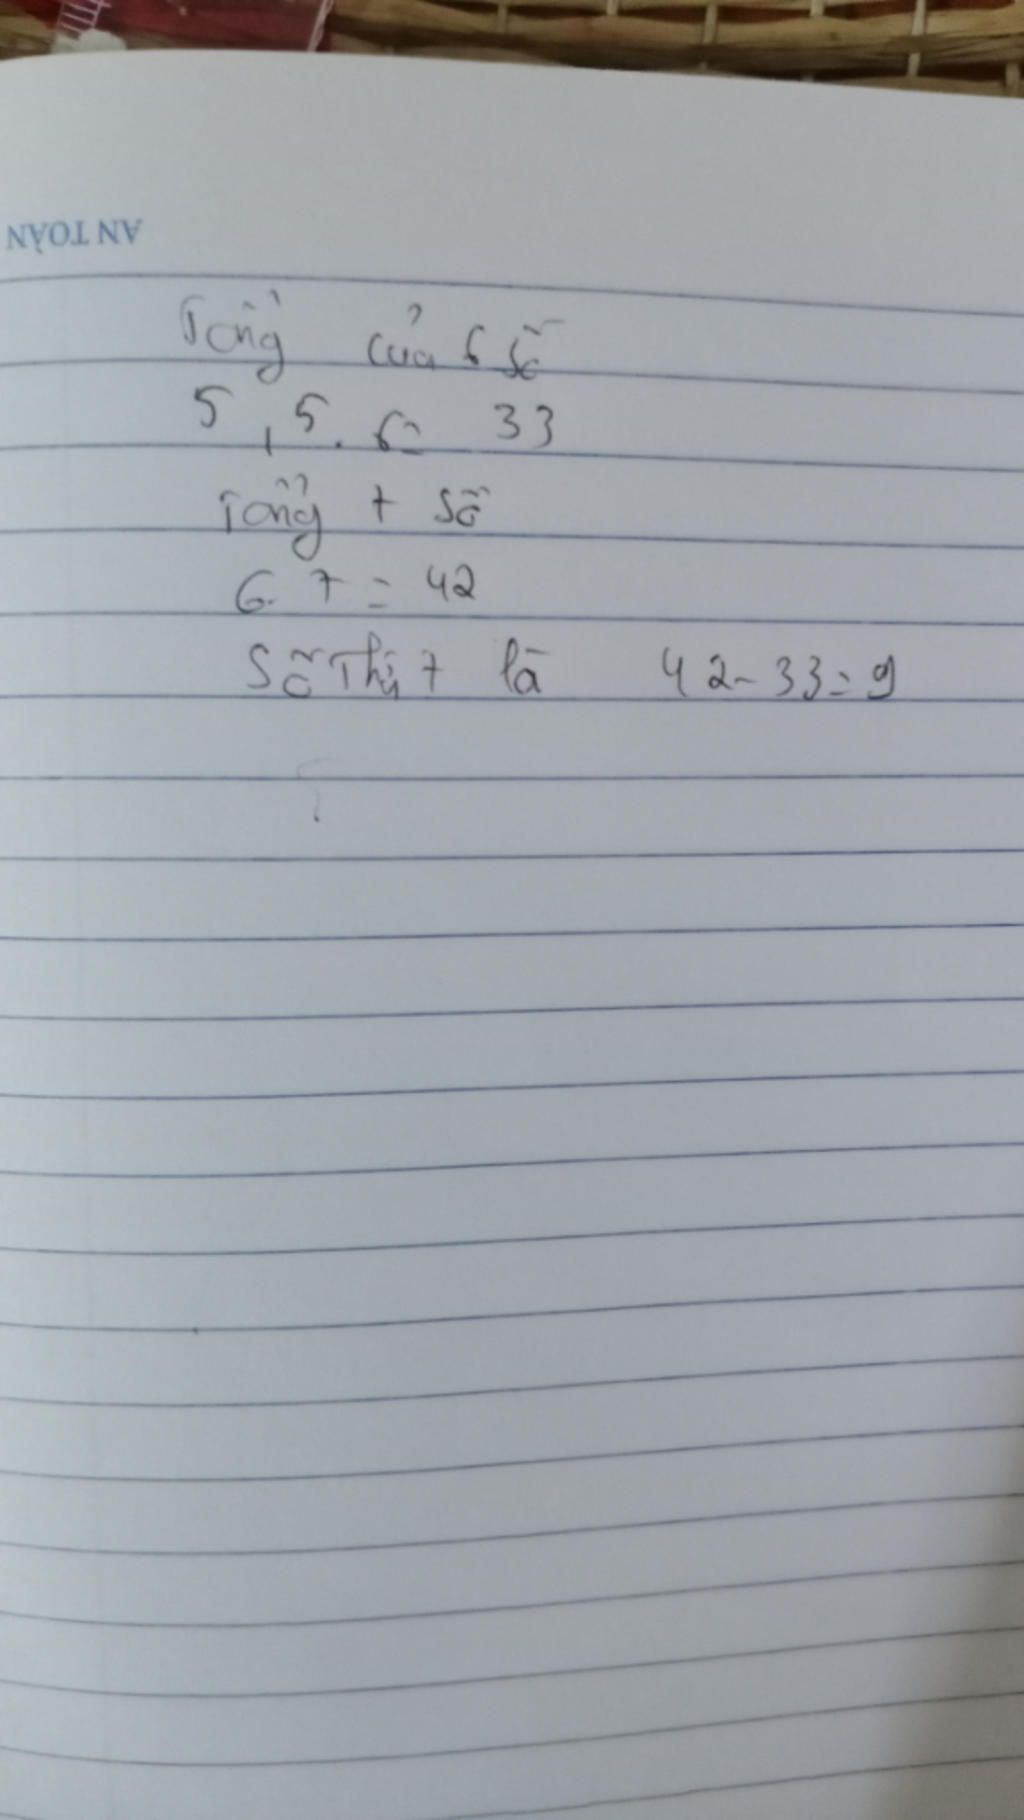 AN TOÀN
Tổng của 6 số
5,5.6= 33
Tổng 7 số
6.7 = 42
Số Thứ 7 là 42-33=9